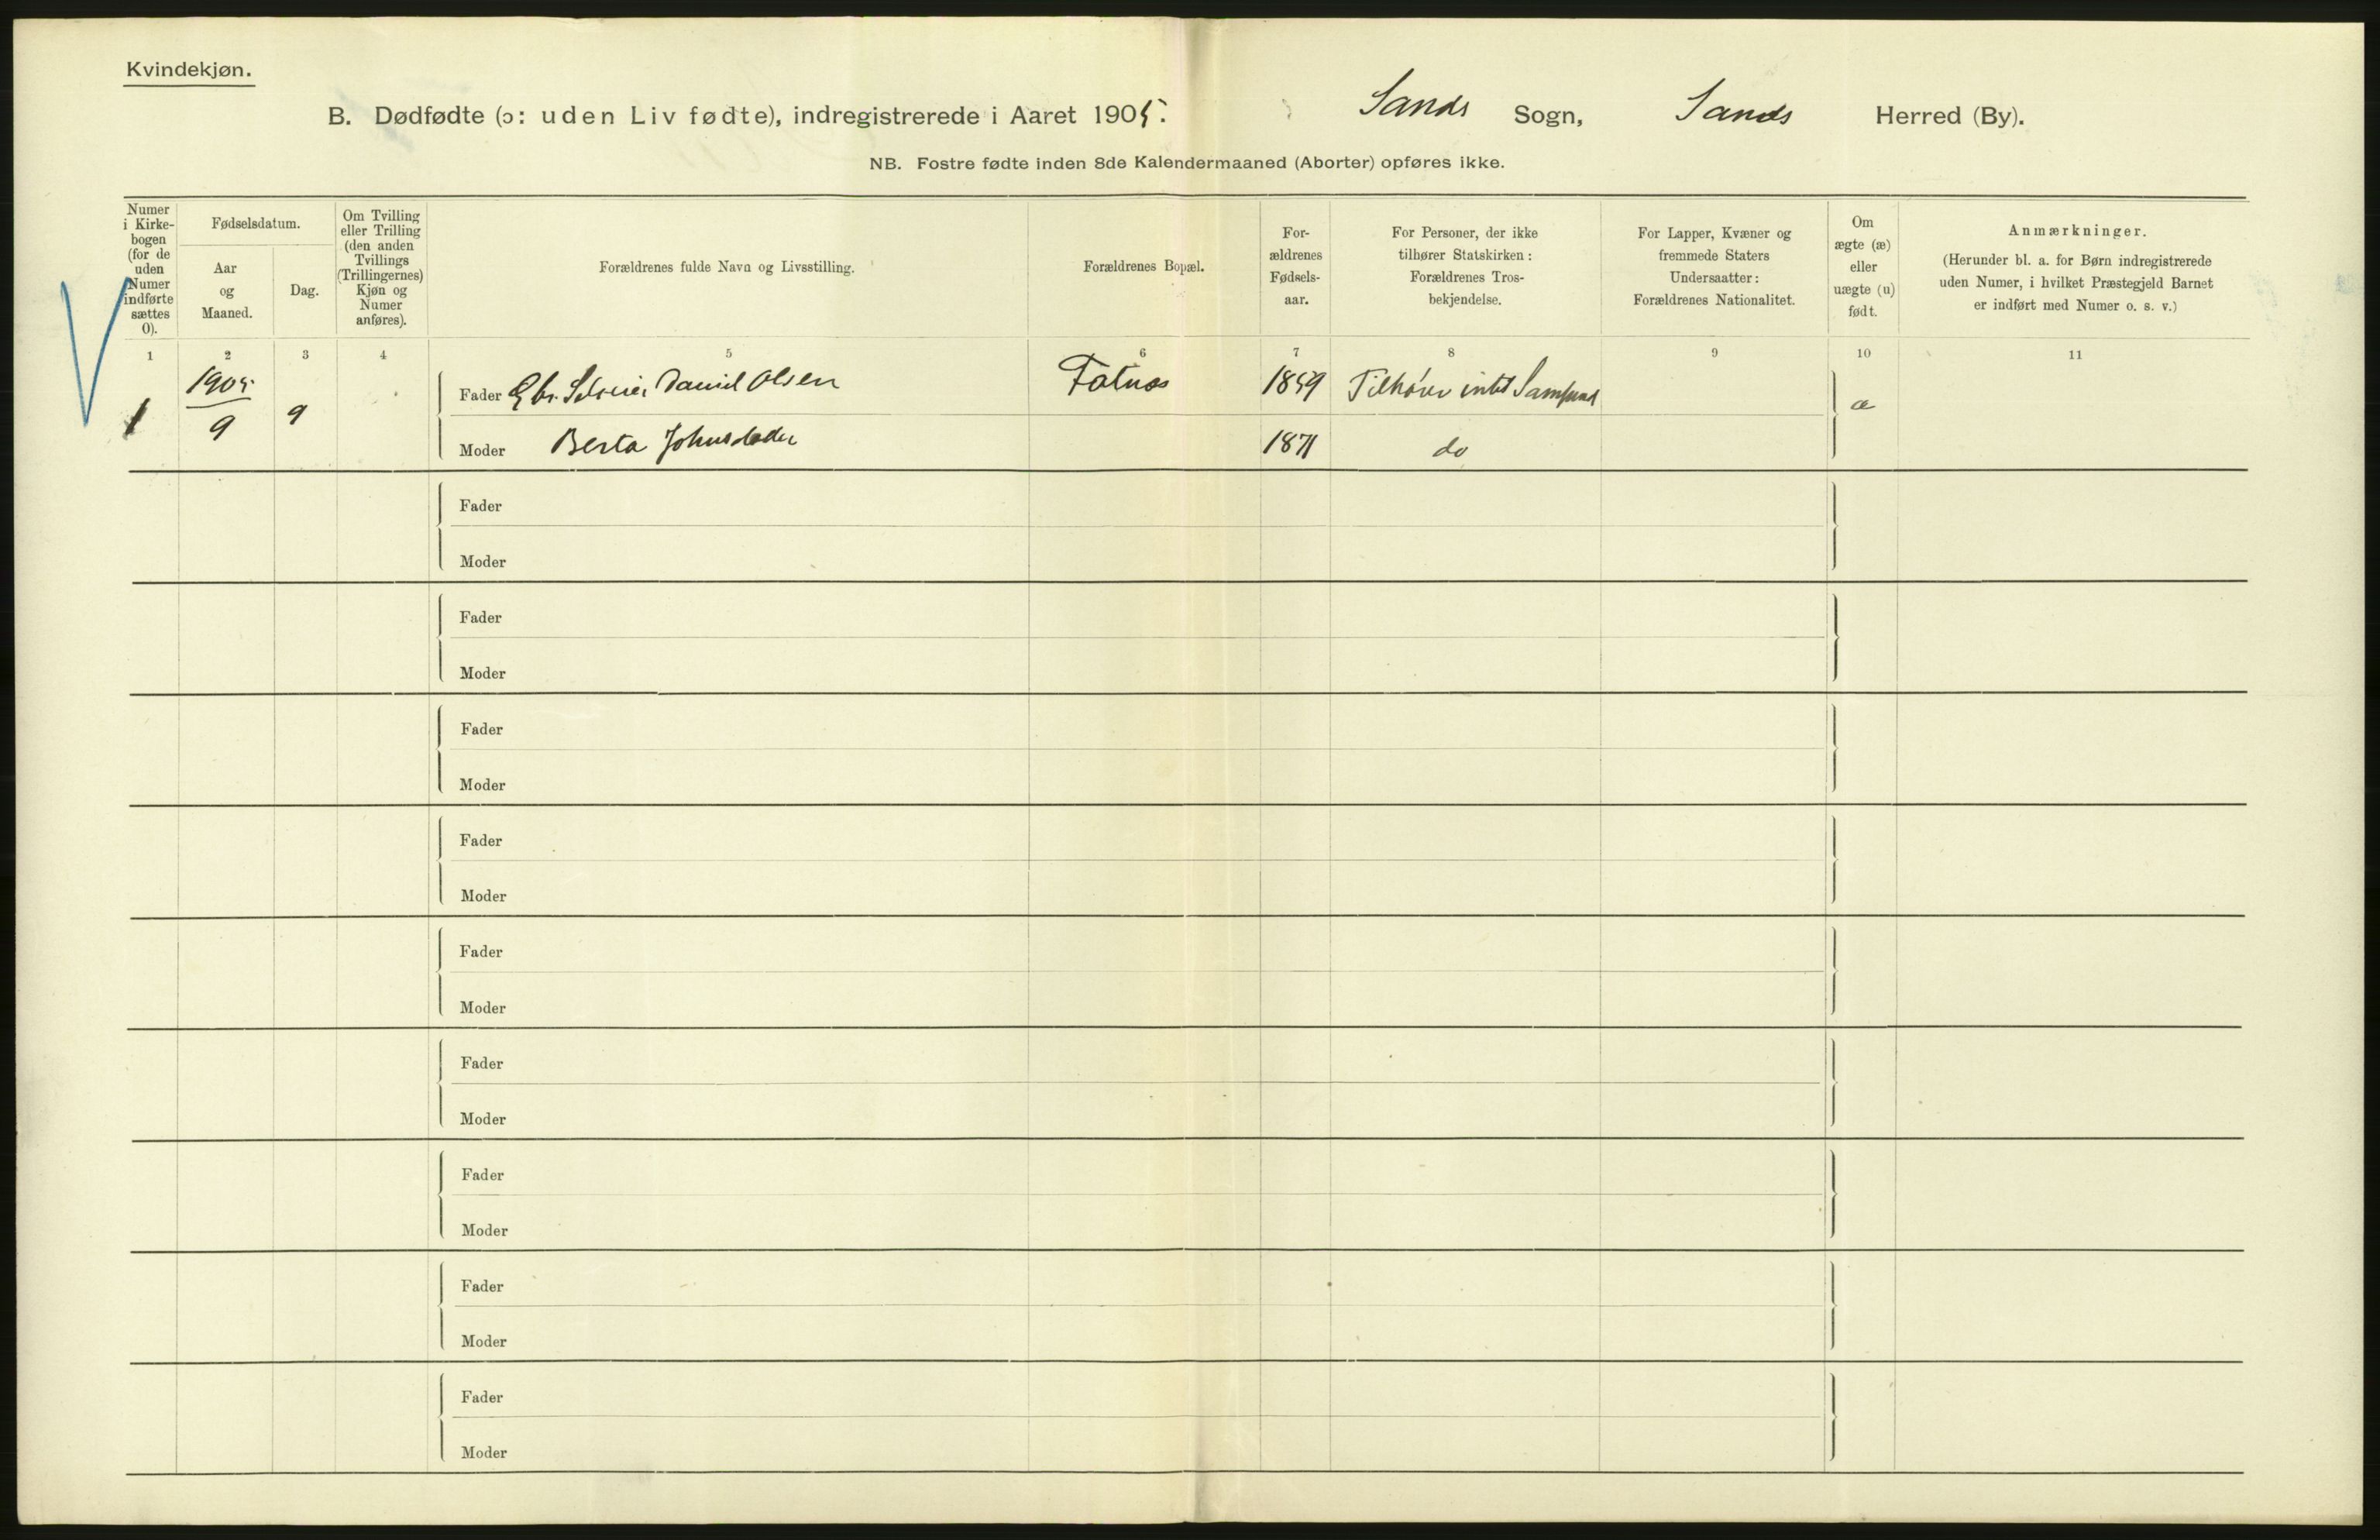 Kvindekjøn.
B. Dødfødte (ɔ: uden Liv fødte), indregistrerede i Aaret 1905. Sands Sogn, Sands Herred (By).
NB. Fostre fødte inden 8de Kalendermaaned (Aborter) opføres ikke.
Numer
i Kirke-
bogen
(for de
uden
Numer
indførte
sættes
0).
Fødselsdatum.
Aar
og
Maaned.
Dag.
Om Tvilling
eller Trilling
(den anden
Tvillings
(Trillingernes)
Kjøn og
Numer
anføres).
Forældrenes fulde Navn og Livsstilling.
Forældrenes Bopæl.
For-
ældrenes
Fødsels-
aar.
For Personer, der ikke
tilhører Statskirken:
Forældrenes Tros-
bekjendelse.
For Lapper, Kvæner og
fremmede Staters
Undersaatter:
Forældrenes Nationalitet.
Om
ægte (æ)
eller
uægte (u)
født.
Anmærkninger.
(Herunder bl. a. for Børn indregistrerede
uden Numer, i hvilket Præstegjeld Barnet
er indført med Numer o. s. v.)
1 2 3 4 5 6 7 8 9 10 11
1 1905 9 9
Fader Gbr. Daniel Olsen Fatnæs 1859 Tilhører intet Samfund æ
Moder Berta Johnsdatter 1871 do
Fader
Moder
Fader
Moder
Fader
Moder
Fader
Moder
Fader
Moder
Fader
Moder
Fader
Moder
Fader
Moder
Fader
Moder